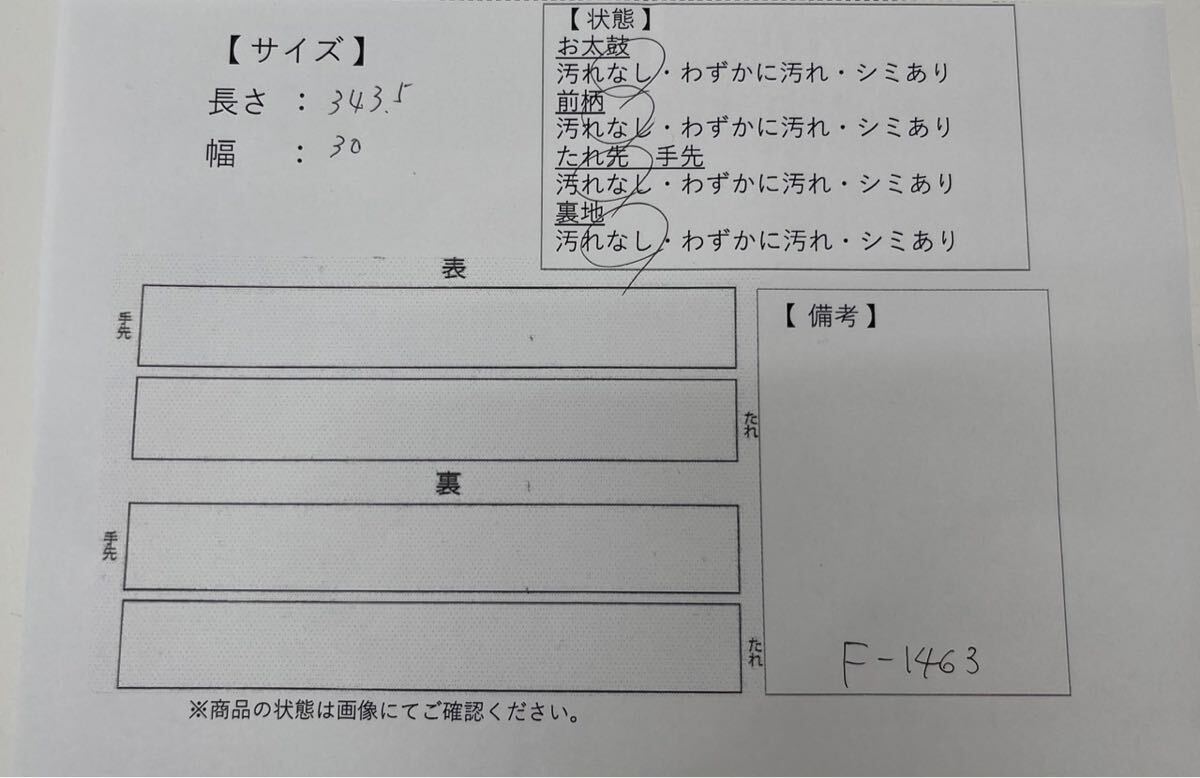 【サイズ】
長さ ： 343.5
幅 ： 30
【状態】
お太鼓
汚れなし・わずかに汚れ・シミあり
前柄
汚れなし・わずかに汚れ・シミあり
たれ先 手先
汚れなし・わずかに汚れ・シミあり
裏地
汚れなし・わずかに汚れ・シミあり
表
手先
たれ
裏
手先
たれ
【備考】
F-1463
※商品の状態は画像にてご確認ください。